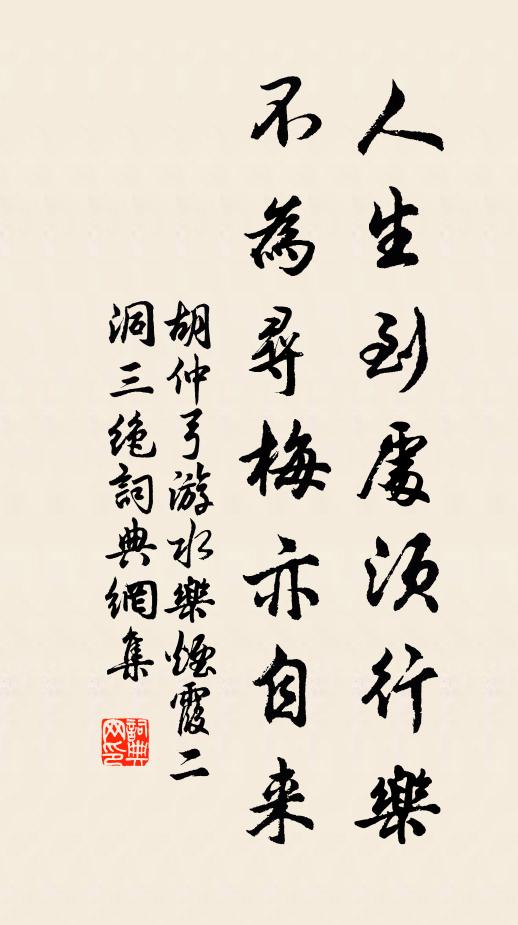 人生到處須行樂
不為尋梅亦自来
胡仲弓游水樂煙霞二
洞三絶詞典網集
詞典网印